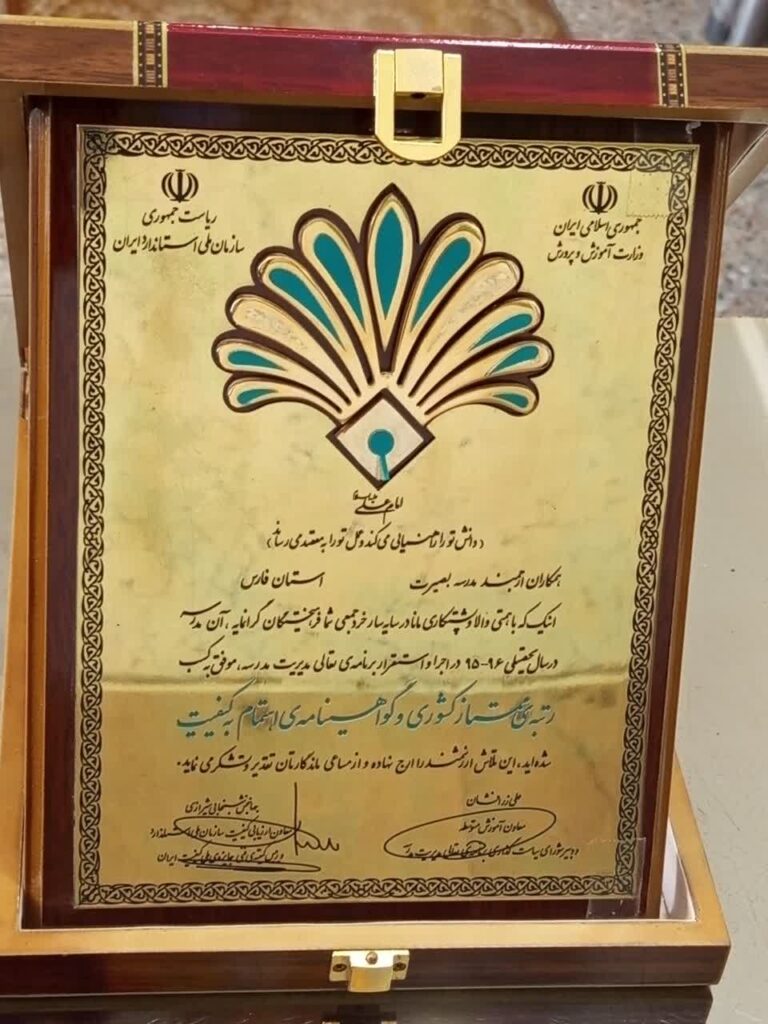 جمهوری اسلامی ایران
وزارت آموزش و پرورش
ریاست جمهوری
سازمان ملی استاندارد ایران
امام علی علیه السلام
(دانش تو را راهنمایی می کند و عمل تو را به مقصد می رساند)
همکاران ارجمند مدرسه بصیرت استان فارس
اینک که با همتی والا و پشتکاری مانا در سایه سار خرد جمعی شما فرهیختگان گرانمایه، آن مدرسه
در سال تحصیلی ۹۶-۹۵ در اجرا و استقرار برنامه ی تعالی مدیریت مدرسه، موفق به کسب
رتبه ی ممتاز کشوری و گواهینامه ی اهتمام به کیفیت
شده اید، این تلاش ارزشمند را ارج نهاده و از مساعی ماندگارتان تقدیر و تشکر می نماید.
علی زرافشان
معاون آموزش متوسطه
و دبیر شورای سیاست گذاری برنامه ی تعالی مدیریت مدرسه
جهانبخش سنجابی شیرازی
معاون ارزیابی کیفیت سازمان ملی استاندارد
جایزه ی ملی کیفیت ایران